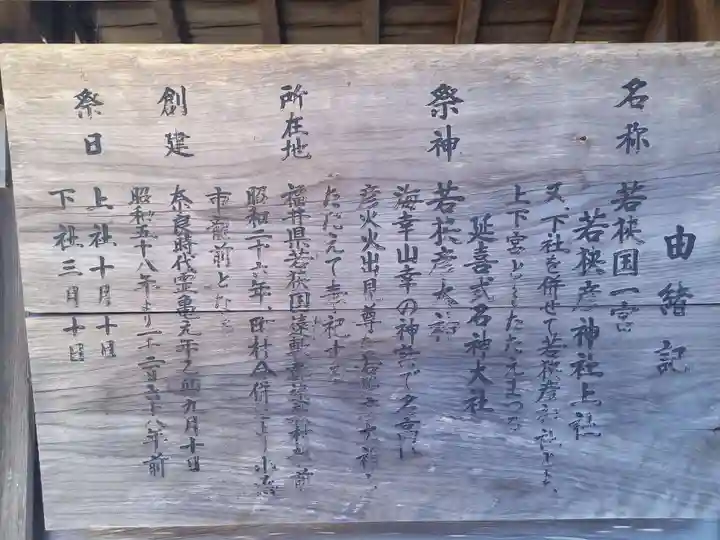 由緒記
名称 若狭国一宮
若狭彦神社上社
又、下社を併せて若狭彦神社
上下宮
延喜式名神大社
祭神 若狭彦大神
海幸山幸の神話で名高い
彦火火出見尊を
たたえて
所在地 福井県若狭国遠敷郡遠敷村龍前
昭和二十六年、町村合併により小浜
市龍前となる
創建 奈良時代霊亀元年 九月十日
昭和五十八年より一千二百六十八年前
祭日 上社十月十日
下社三月十日